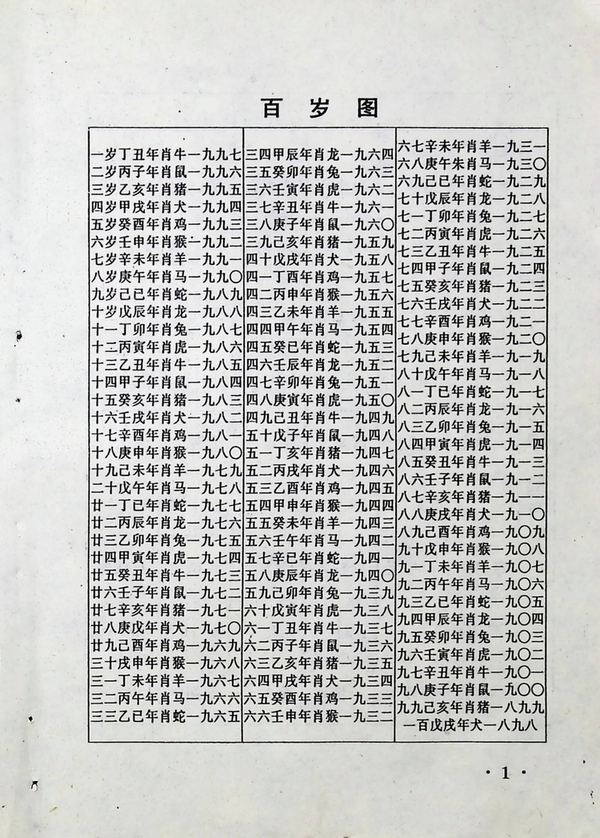 百岁图
一岁丁丑年肖牛一九九七
二岁丙子年肖鼠一九九六
三岁乙亥年肖猪一九九五
四岁甲戌年肖犬一九九四
五岁癸酉年肖鸡一九九三
六岁壬申年肖猴一九九二
七岁辛未年肖羊一九九一
八岁庚午年肖马一九九〇
九岁己巳年肖蛇一九八九
十岁戊辰年肖龙一九八八
十一丁卯年肖兔一九八七
十二丙寅年肖虎一九八六
十三乙丑年肖牛一九八五
十四甲子年肖鼠一九八四
十五癸亥年肖猪一九八三
十六壬戌年肖犬一九八二
十七辛酉年肖鸡一九八一
十八庚申年肖猴一九八〇
十九己未年肖羊一九七九
二十戊午年肖马一九七八
廿一丁巳年肖蛇一九七七
廿二丙辰年肖龙一九七六
廿三乙卯年肖兔一九七五
廿四甲寅年肖虎一九七四
廿五癸丑年肖牛一九七三
廿六壬子年肖鼠一九七二
廿七辛亥年肖猪一九七一
廿八庚戌年肖犬一九七〇
廿九己酉年肖鸡一九六九
三十戊申年肖猴一九六八
三一丁未年肖羊一九六七
三二丙午年肖马一九六六
三三乙巳年肖蛇一九六五
三四甲辰年肖龙一九六四
三五癸卯年肖兔一九六三
三六壬寅年肖虎一九六二
三七辛丑年肖牛一九六一
三八庚子年肖鼠一九六〇
三九己亥年肖猪一九五九
四十戊戌年肖犬一九五八
四一丁酉年肖鸡一九五七
四二丙申年肖猴一九五六
四三乙未年肖羊一九五五
四四甲午年肖马一九五四
四五癸巳年肖蛇一九五三
四六壬辰年肖龙一九五二
四七辛卯年肖兔一九五一
四八庚寅年肖虎一九五〇
四九己丑年肖牛一九四九
五十戊子年肖鼠一九四八
五一丁亥年肖猪一九四七
五二丙戌年肖犬一九四六
五三乙酉年肖鸡一九四五
五四甲申年肖猴一九四四
五五癸未年肖羊一九四三
五六壬午年肖马一九四二
五七辛巳年肖蛇一九四一
五八庚辰年肖龙一九四〇
五九己卯年肖兔一九三九
六十戊寅年肖虎一九三八
六一丁丑年肖牛一九三七
六二丙子年肖鼠一九三六
六三乙亥年肖猪一九三五
六四甲戌年肖犬一九三四
六五癸酉年肖鸡一九三三
六六壬申年肖猴一九三二
六七辛未年肖羊一九三一
六八庚午朱肖马一九三〇
六九己巳年肖蛇一九二九
七十戊辰年肖龙一九二八
七一丁卯年肖兔一九二七
七二丙寅年肖虎一九二六
七三乙丑年肖牛一九二五
七四甲子年肖鼠一九二四
七五癸亥年肖猪一九二三
七六壬戌年肖犬一九二二
七七辛酉年肖鸡一九二一
七八庚申年肖猴一九二〇
七九己未年肖羊一九一九
八十戊午年肖马一九一八
八一丁巳年肖蛇一九一七
八二丙辰年肖龙一九一六
八三乙卯年肖兔一九一五
八四甲寅年肖虎一九一四
八五癸丑年肖牛一九一三
八六壬子年肖鼠一九一二
八七辛亥年肖猪一九一一
八八庚戌年肖犬一九一〇
八九己酉年肖鸡一九〇九
九十戊申年肖猴一九〇八
九一丁未年肖羊一九〇七
九二丙午年肖马一九〇六
九三乙巳年肖蛇一九〇五
九四甲辰年肖龙一九〇四
九五癸卯年肖兔一九〇三
九六壬寅年肖虎一九〇二
九七辛丑年肖牛一九〇一
九八庚子年肖鼠一九〇〇
九九己亥年肖猪一八九九
一百戊戌年犬一八九八
·1·